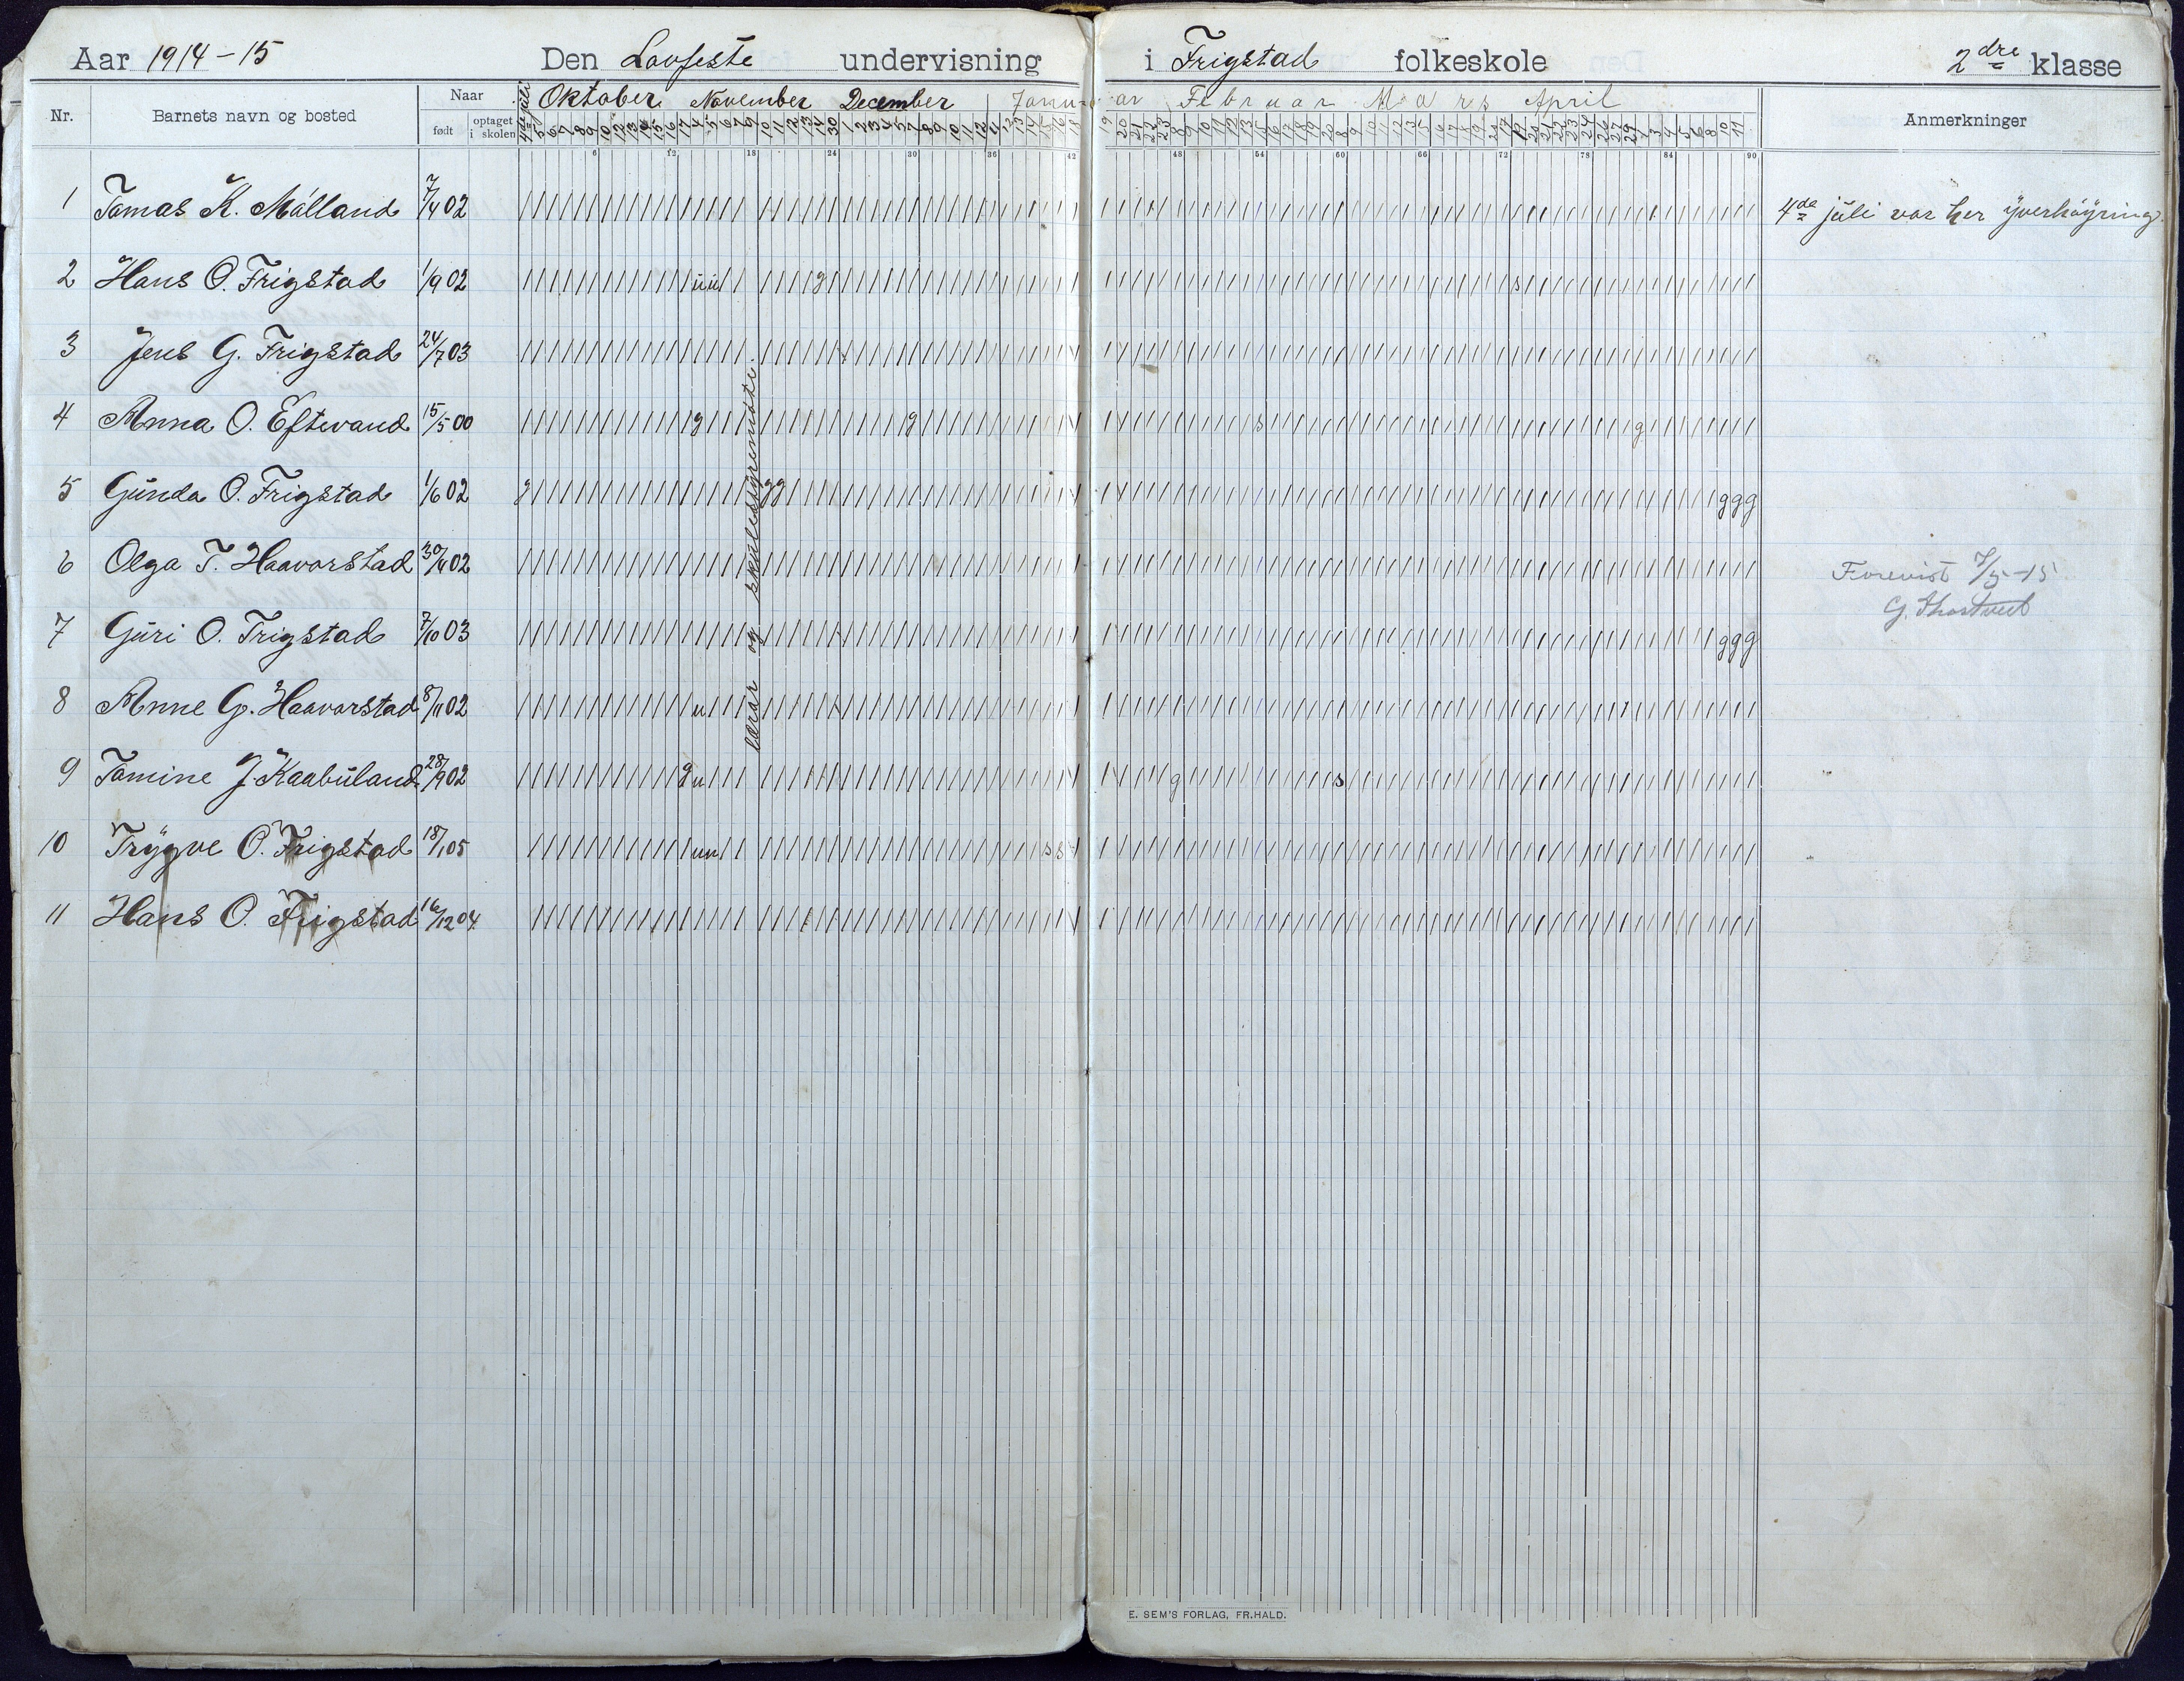 Aar 1914-15 Den Lovfeste undervisning i Frigstad folkeskole 2dre klasse
Nr. Barnets navn og bosted Naar født optaget i skolen 4de juli Oktober November December Januar Februar Mars April Anmerkninger
6 12 18 24 30 36 42 48 54 60 66 72 78 84 90
1 Tomas K. Mølland 7/4 02 4de juli var her yverhøyring.
2 Hans O. Frigstad 1/9 02
3 Jens G. Frigstad 24/7 03
4 Anna O. Eftevand 15/5 00
5 Gunda O. Frigstad 1/6 02
6 Olga T. Haavorstad 30/4 02
Forevist 7/5-15
7 Guri O. Frigstad 7/10 03
8 Anne G. Haavorstad 8/11 02
9 Tomine J. Kaabuland 28/9 02
10 Trygve O. Frigstad 18/1 05
11 Hans O. Frigstad 16/12 04.
lærar og skulestyremøte.
E. SEM'S FORLAG, FR.HALD.